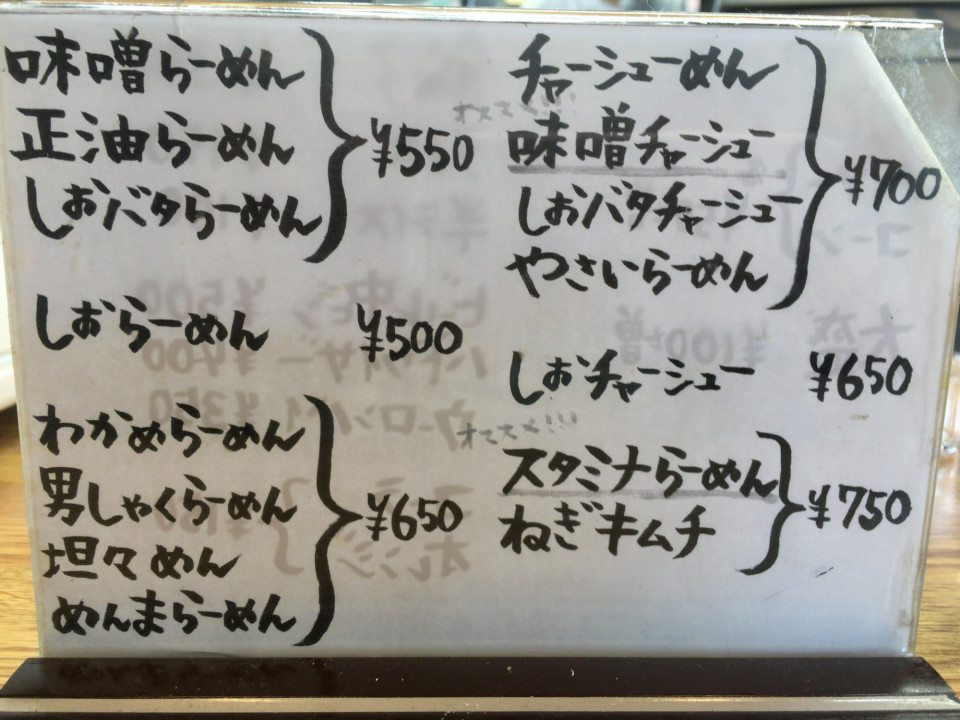 味噌らーめん
正油らーめん
しおバタらーめん
¥550
しおらーめん ¥500
わかめらーめん
男しゃくらーめん
坦々めん
めんまらーめん
¥650
チャーシューめん
オススメ!!!
味噌チャーシュー
しおバタチャーシュー
やさいらーめん
¥700
しおチャーシュー ¥650
オススメ!!!
スタミナらーめん
ねぎキムチ
¥750